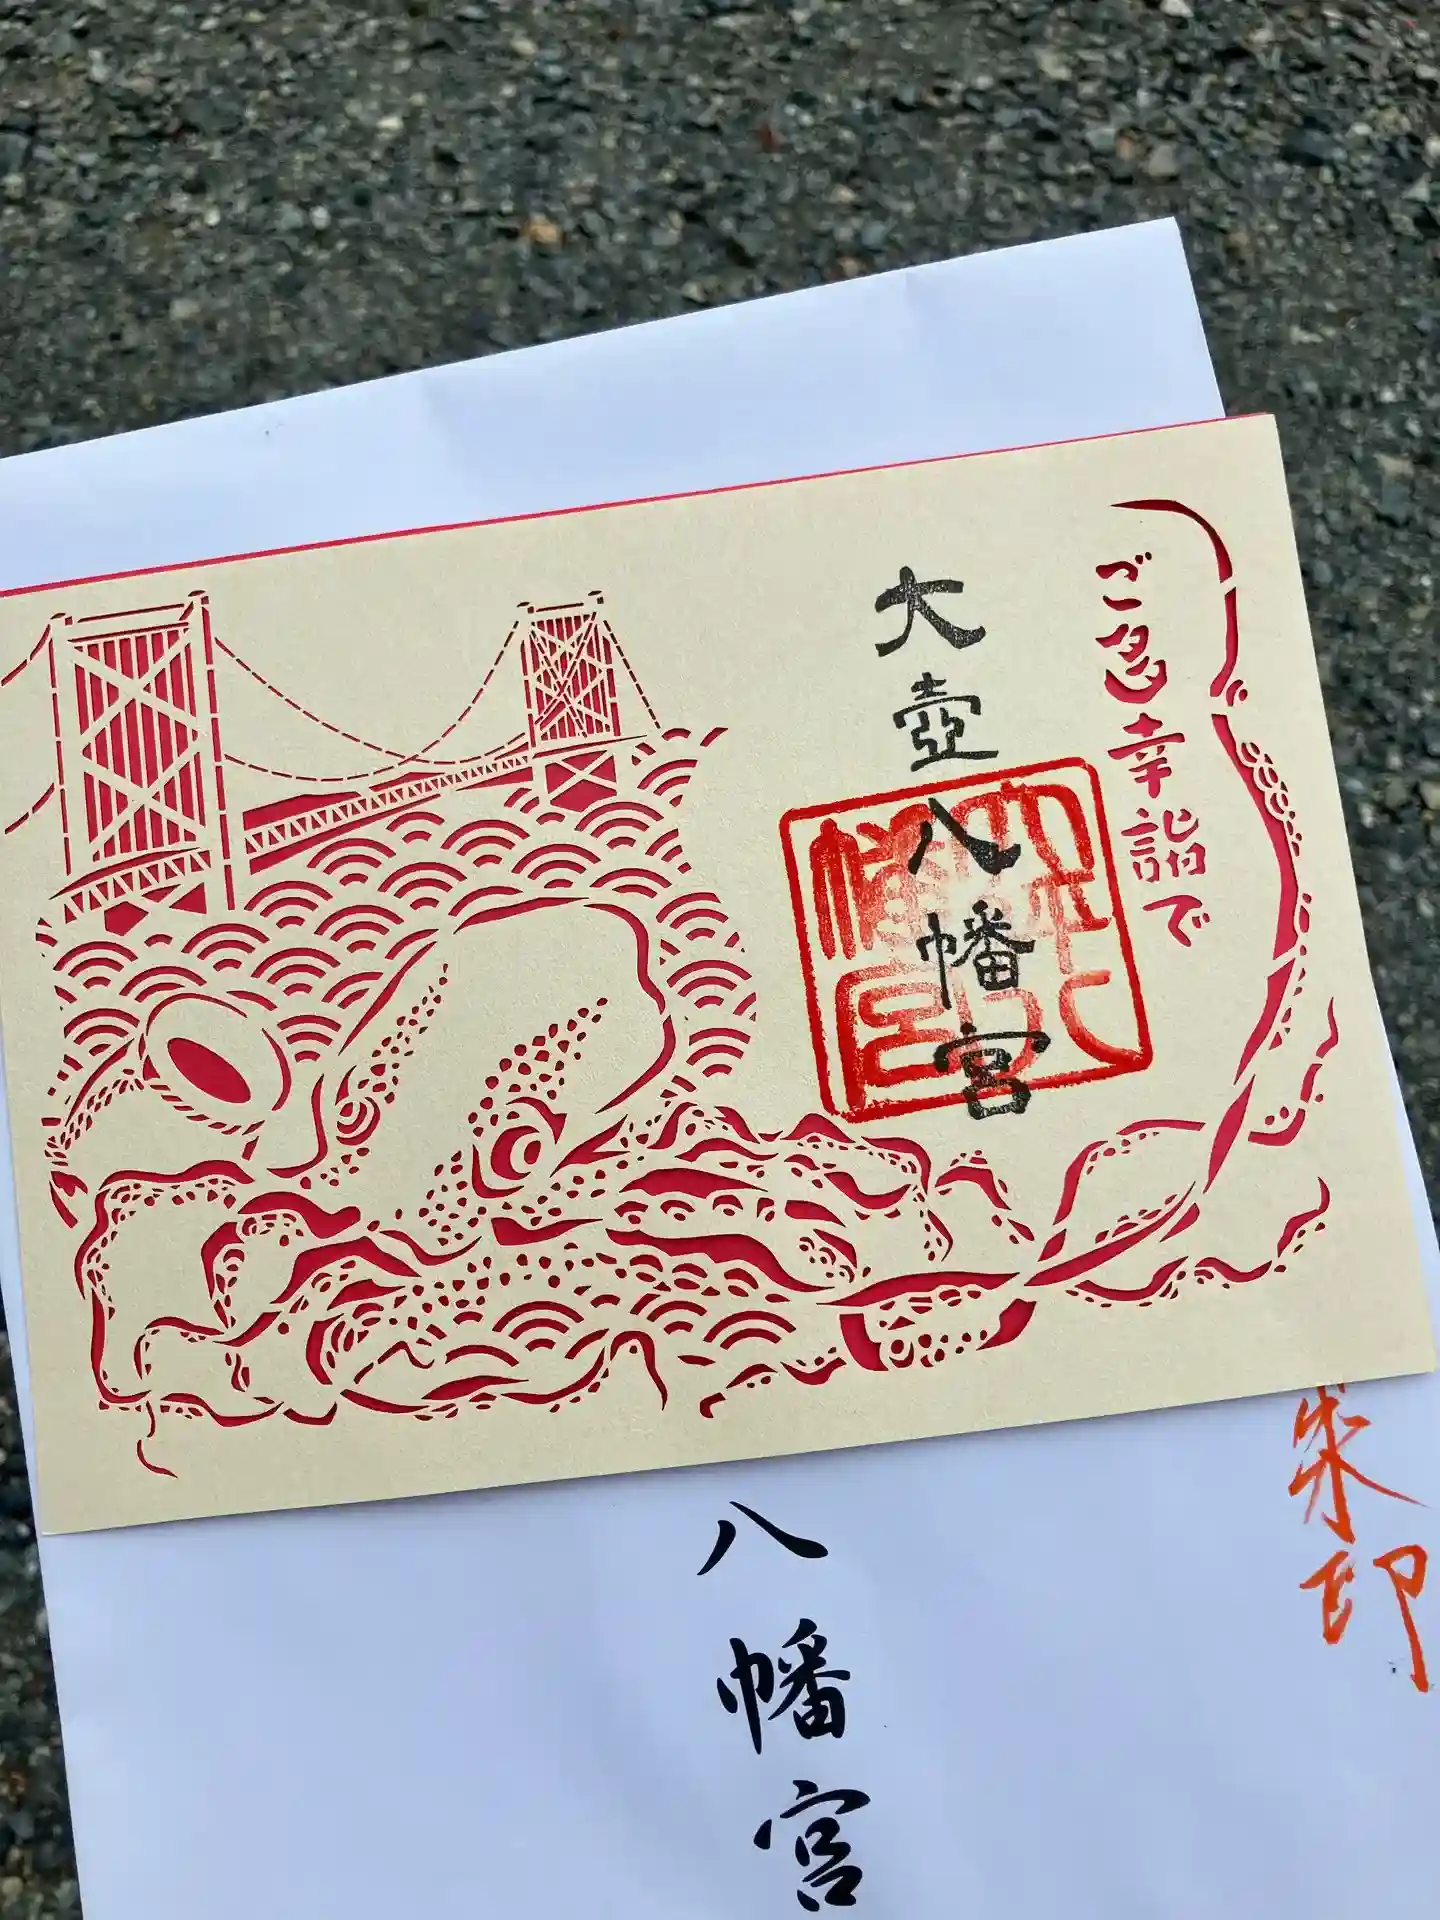 ご多幸詣で
大壺八幡宮
朱印
八幡宮